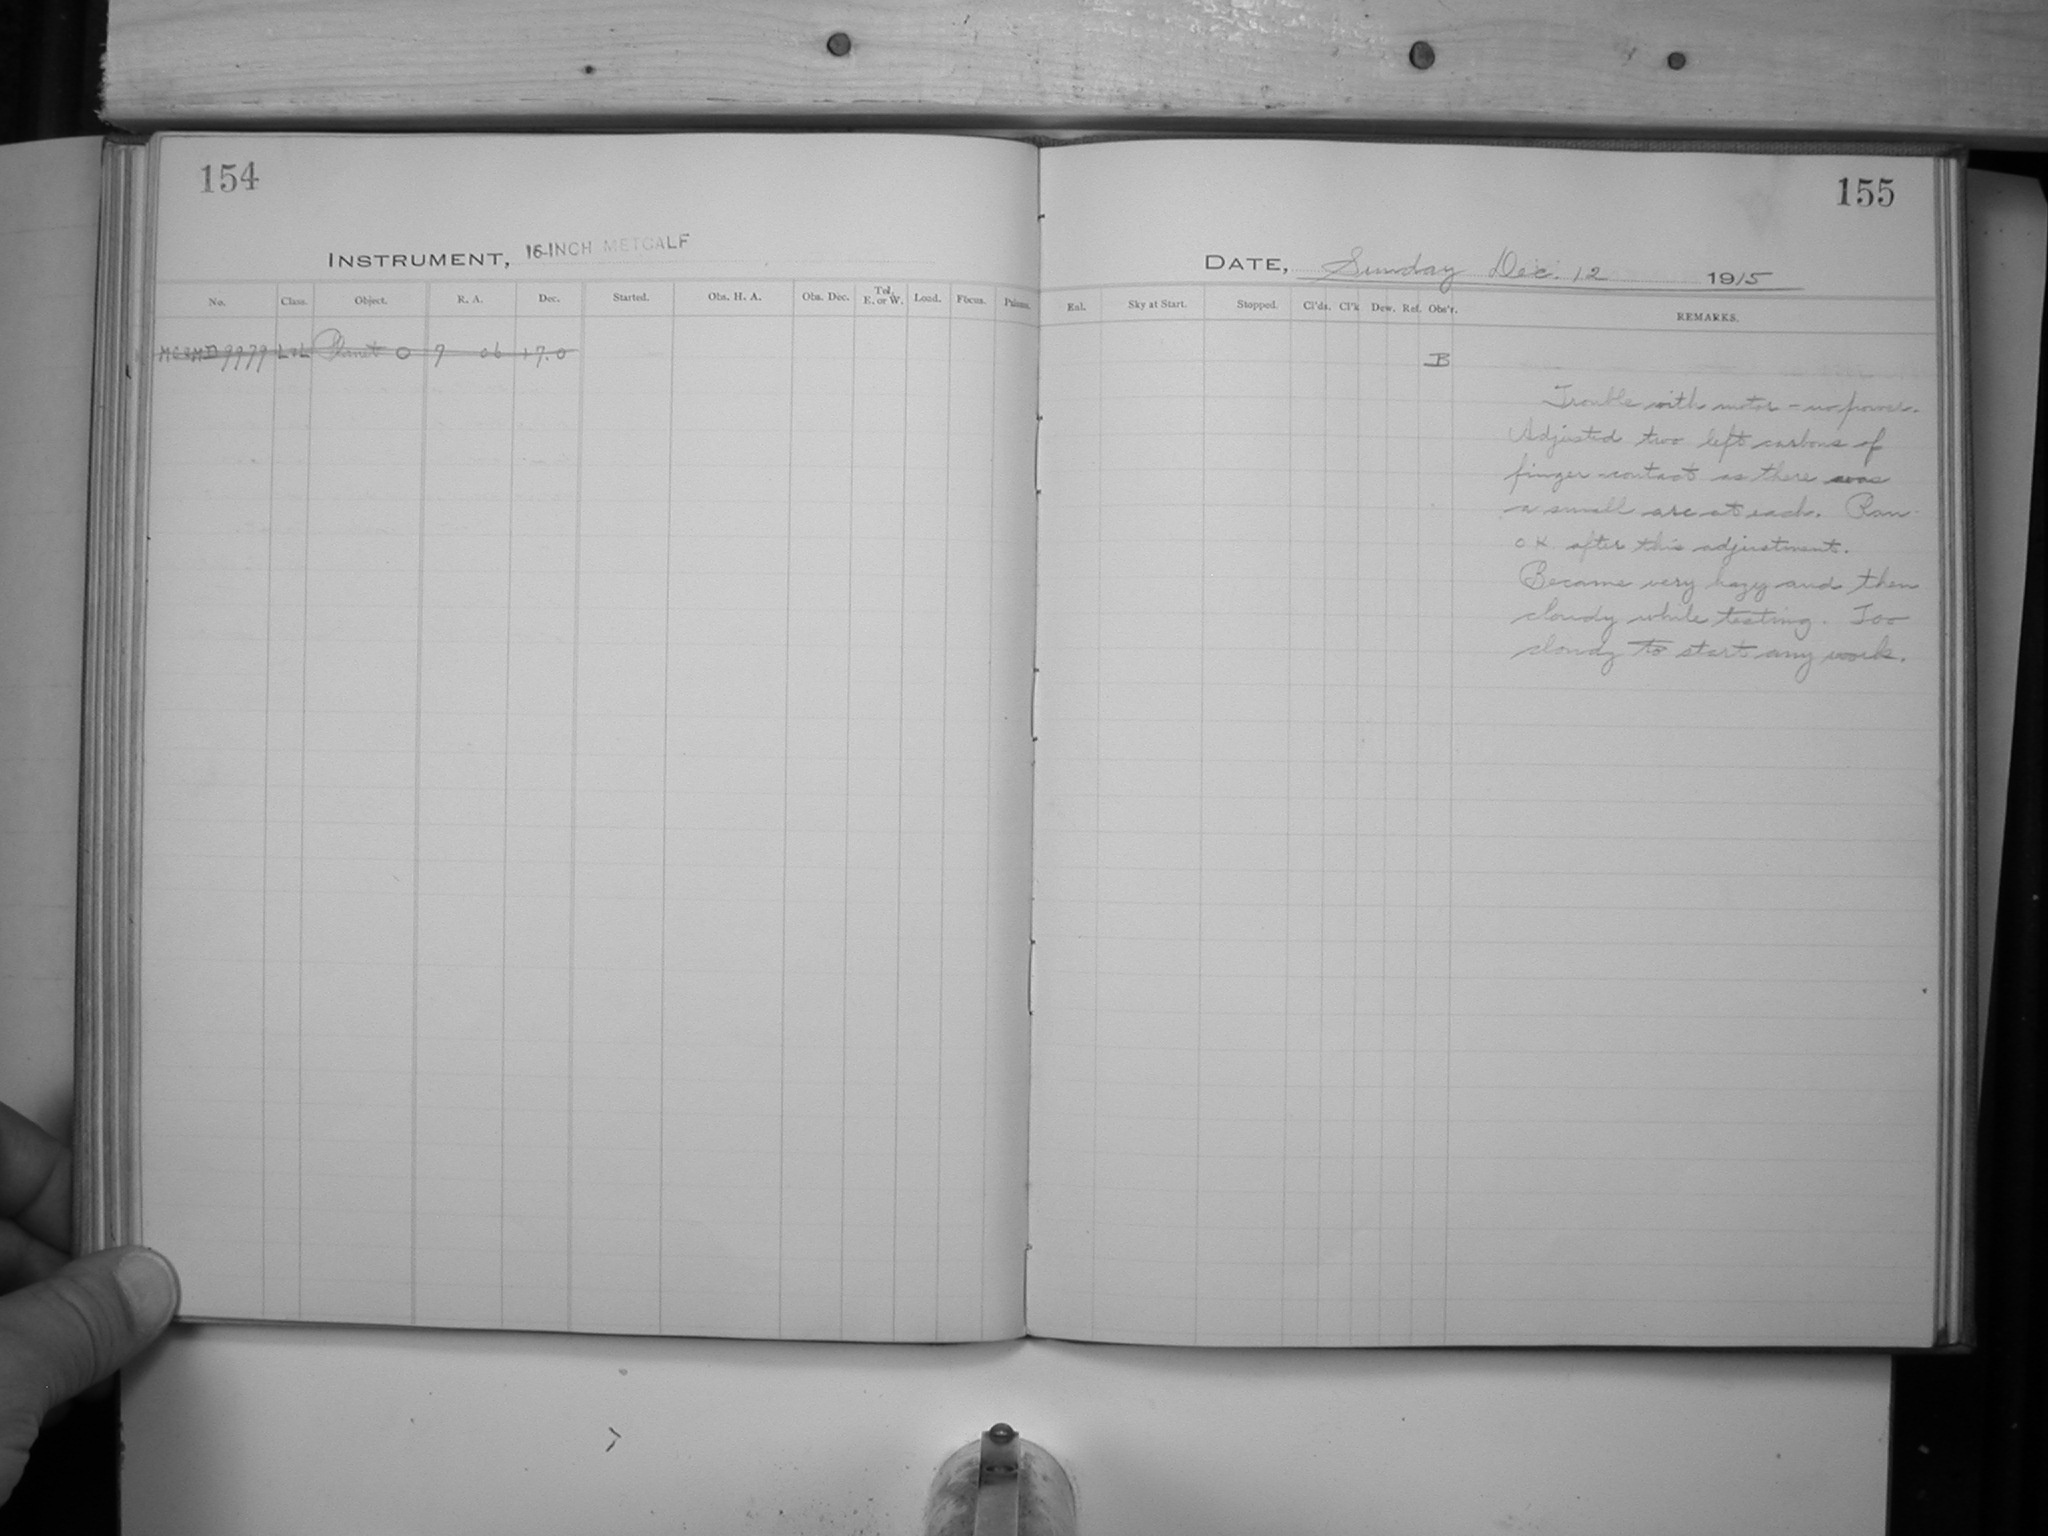 154
INSTRUMENT, 16-INCH METCALF
No. Class. Object. R. A. Dec. Started. Obs. H. A. Obs. Dec. Tel. E. or W. Load. Focus. Prisms.
9979 L&L Planet O 7 06 +7.0
155
DATE, Sunday Dec. 12 1915
Ent. Sky at Start. Stopped. Cl'ds. Cl'k Dew. Ref. Obs'r. REMARKS.
B
Trouble with motor - no power.
Adjusted two left carbons of
finger contact as there was
a small arc at each. Ran
OK after this adjustment.
Became very hazy and then
cloudy while testing. Too
cloudy to start any work.